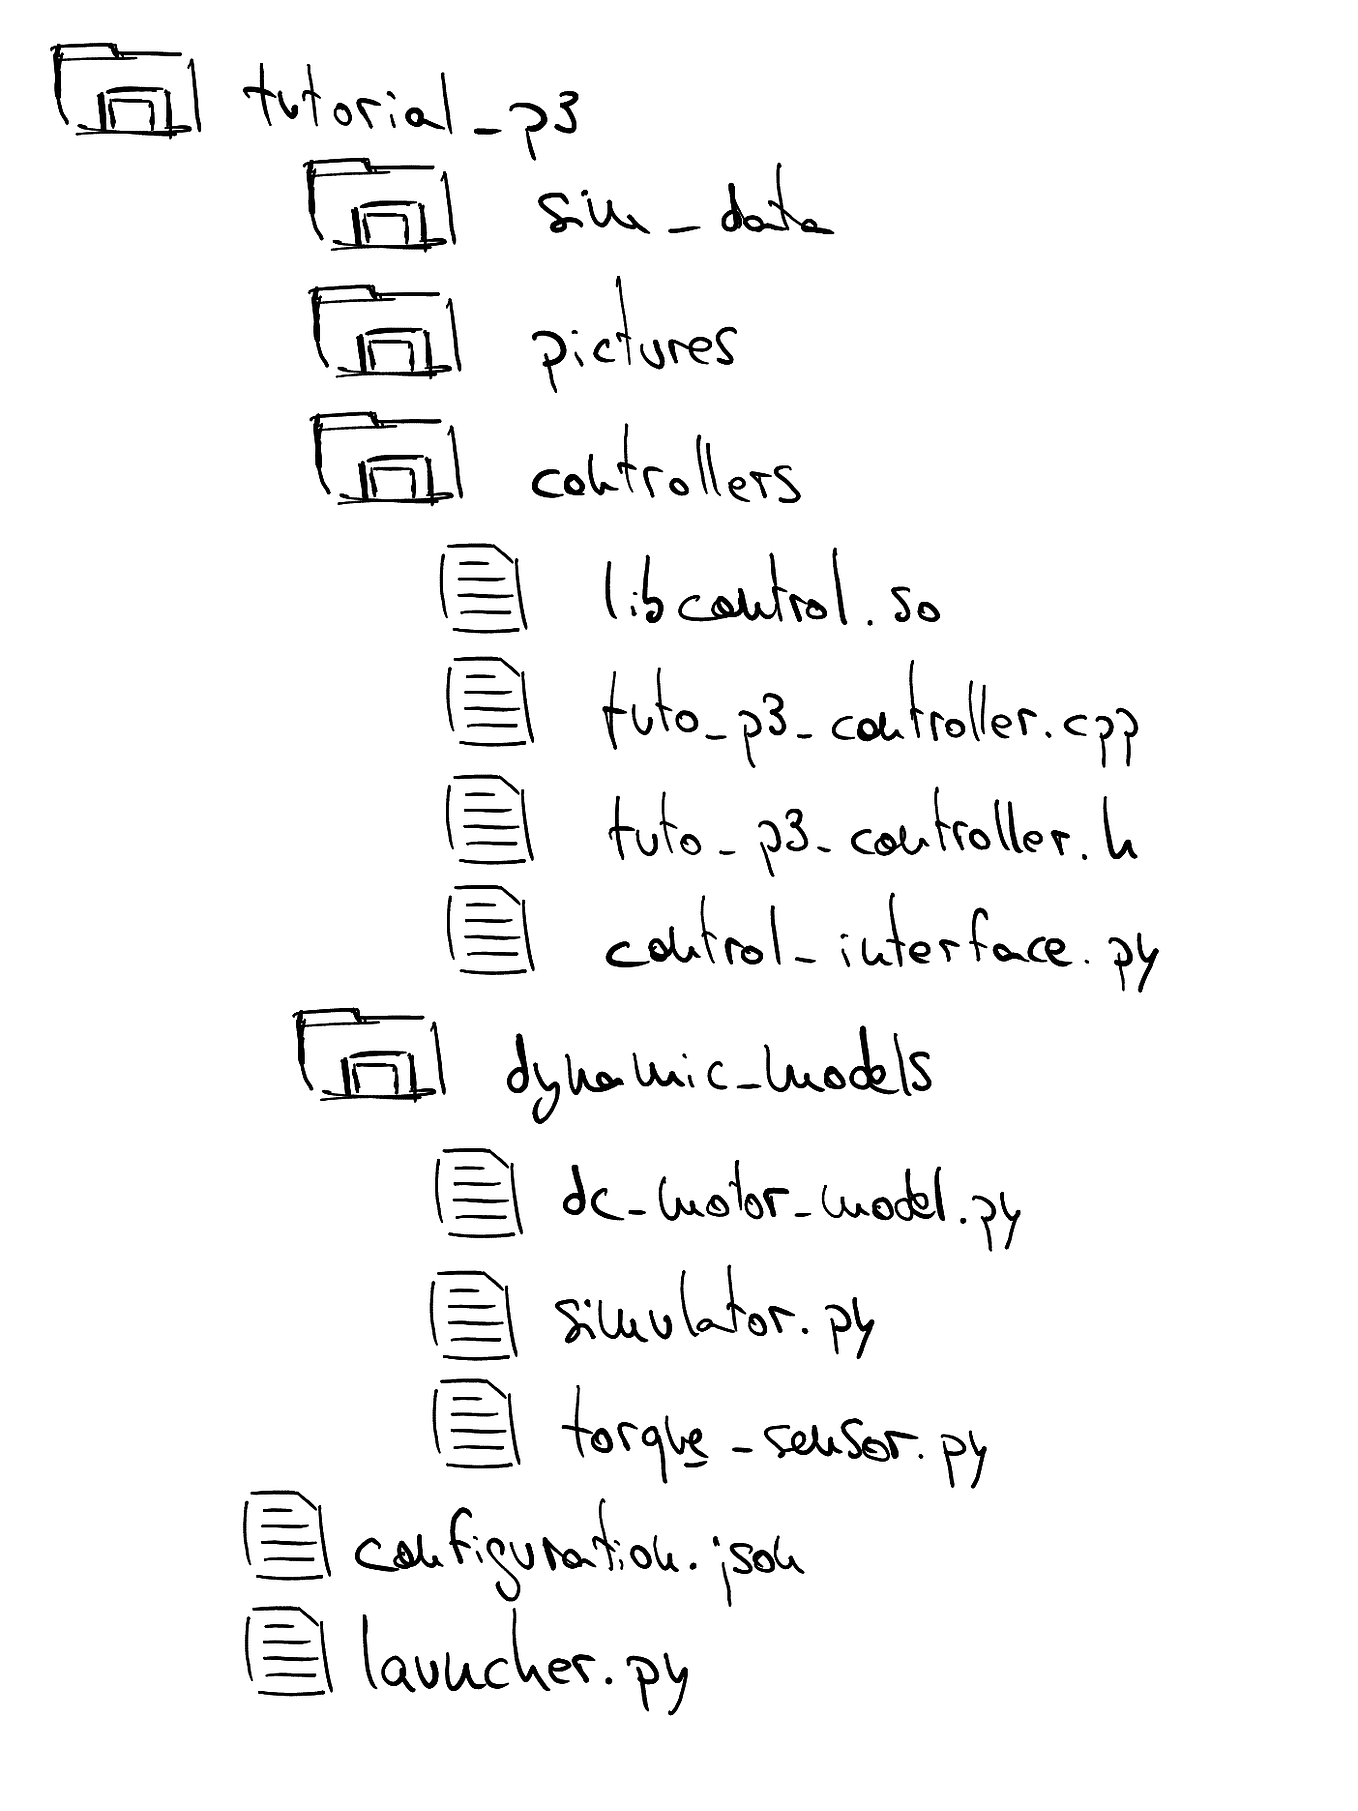 tutorial_p3
sim_data
pictures
controllers
libcontrol.so
tuto_p3_controller.cpp
tuto_p3_controller.h
control_interface.py
dynamic_models
dc_motor_model.py
simulator.py
torque_sensor.py
configuration.json
launcher.py